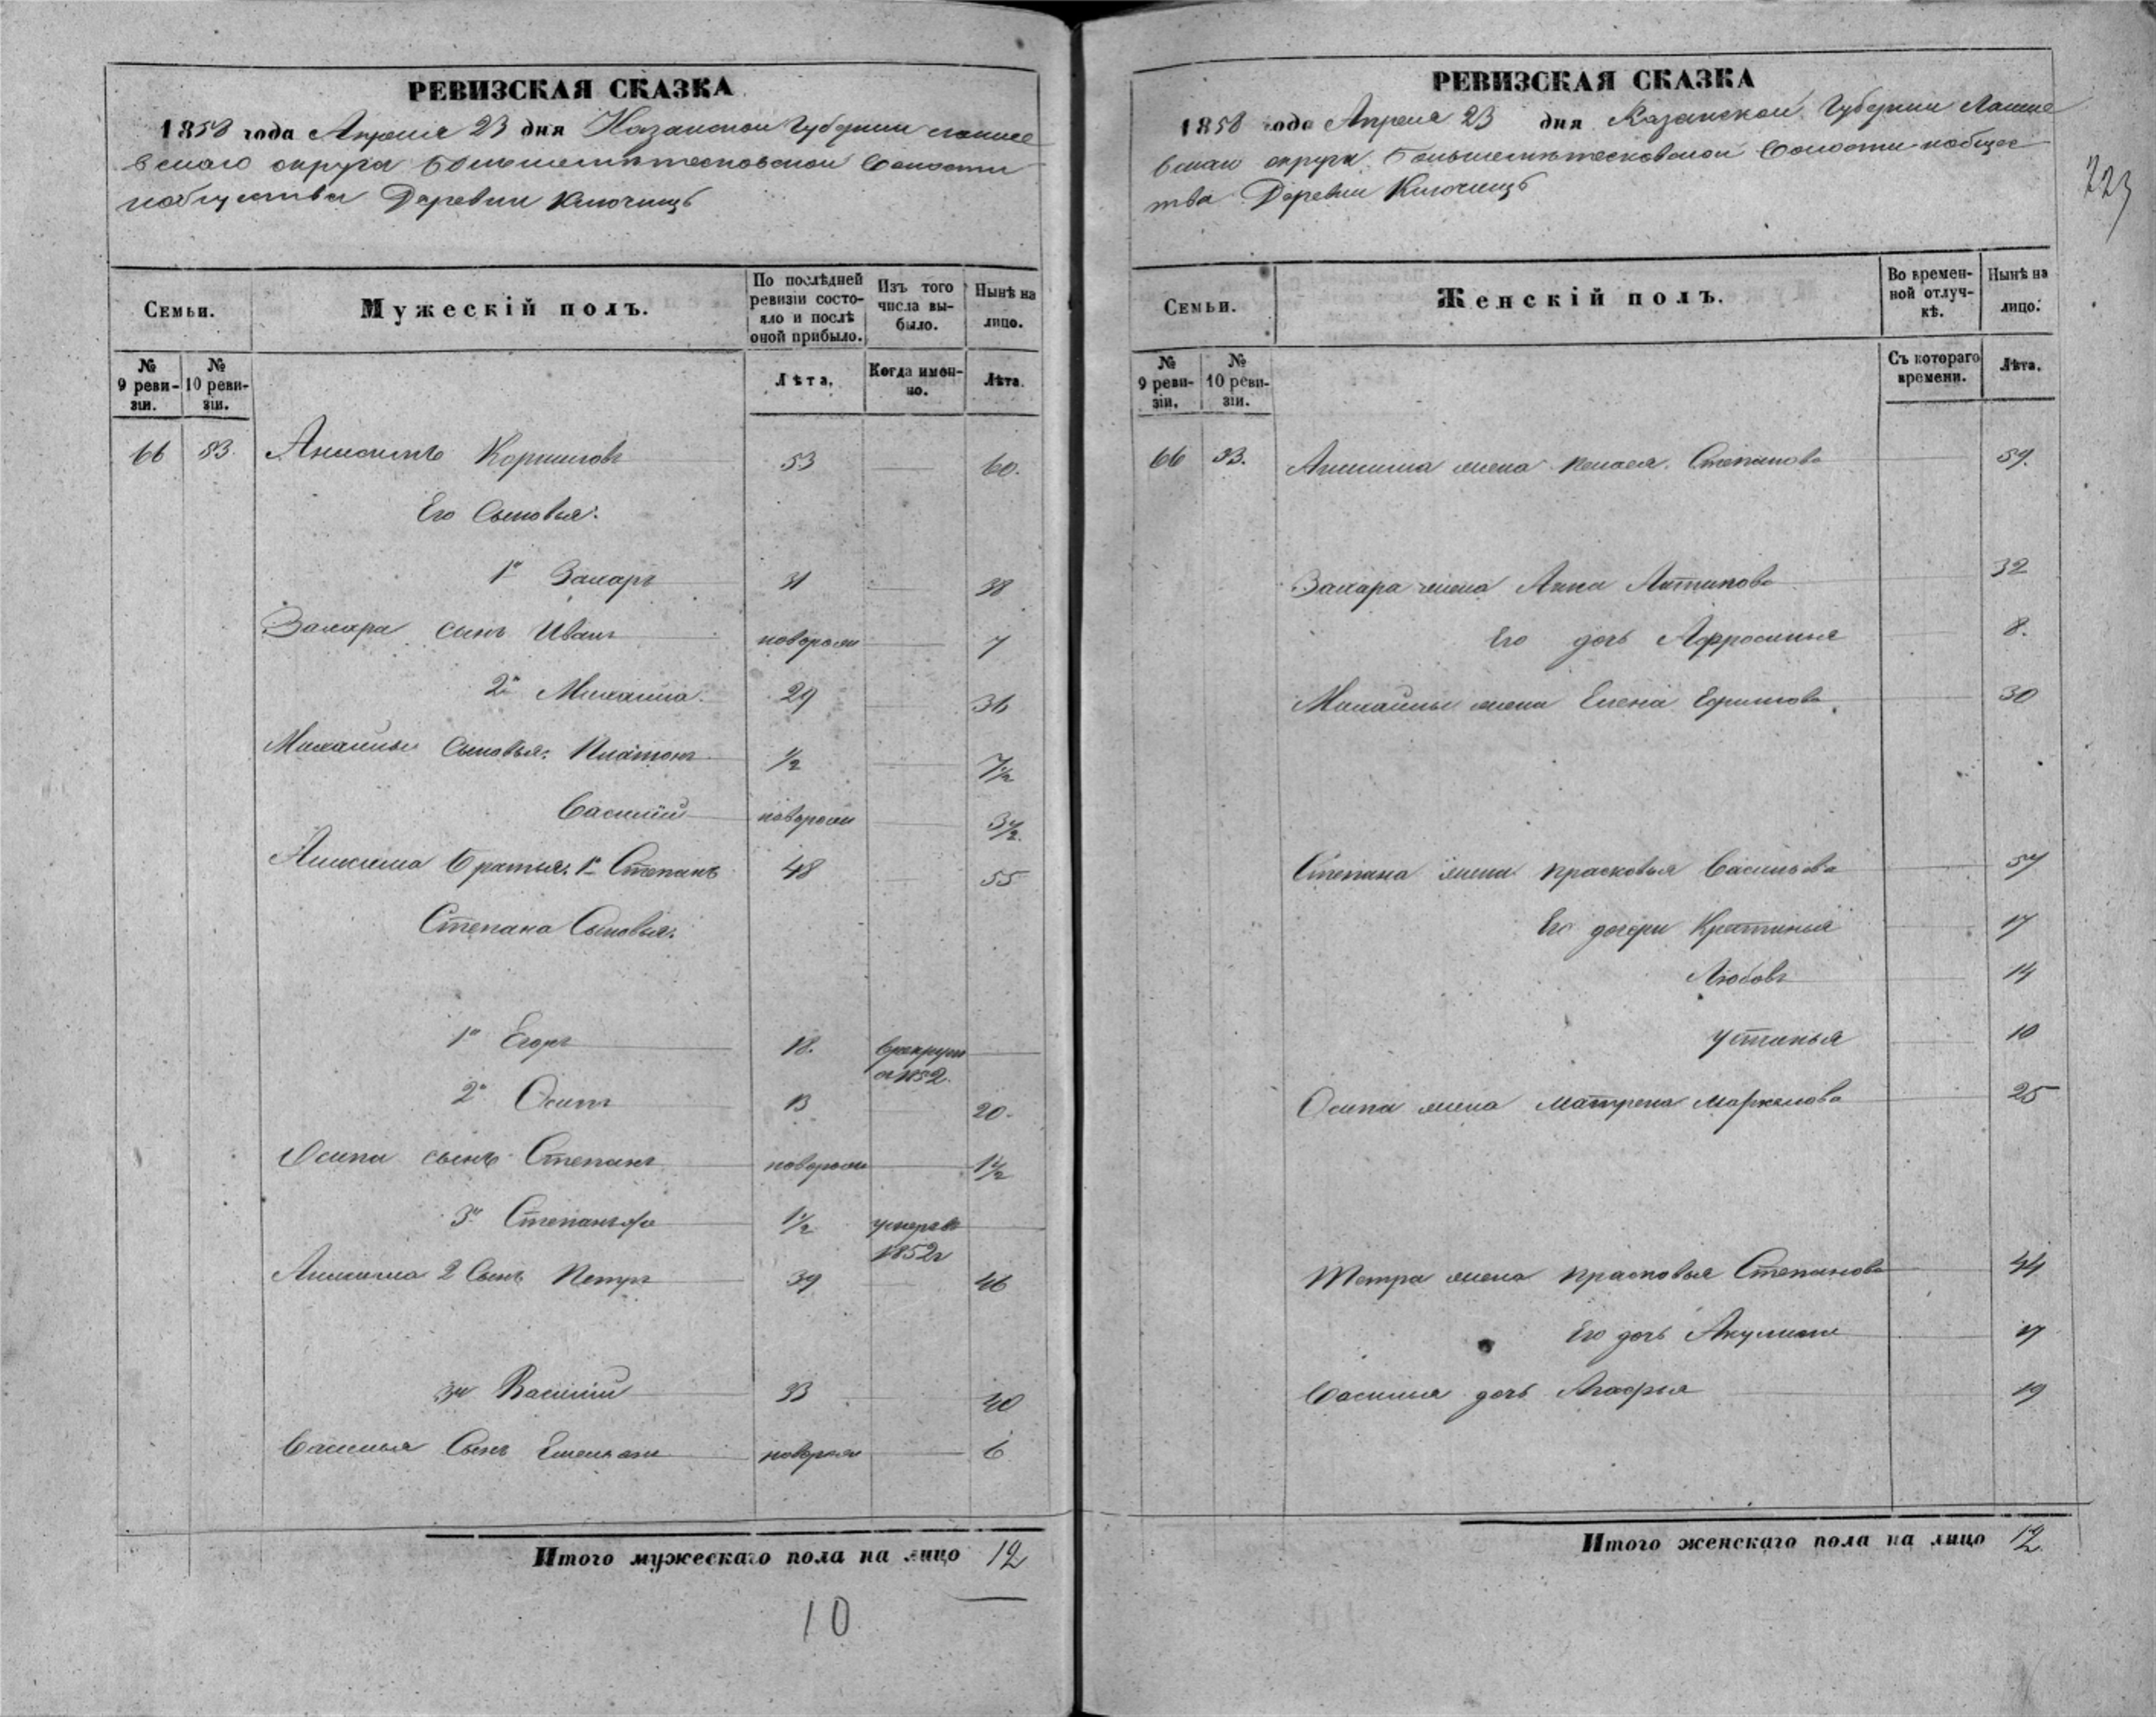 РЕВИЗСКАЯ СКАЗКА
1858 года Апреля 23 дня Казанской Губернии Лаише
вскаго округа волости
и общества Деревни Ключищъ
Семьи.
Мужескій полъ.
По послѣдней ревизіи состояло и послѣ оной прибыло.
Изъ того числа выбыло.
Нынѣ на лицо.
№ 9 ревизіи.
№ 10 ревизіи.
Лѣта.
Когда именно.
Лѣта.
66 83. Анисимъ Корниловъ 53 60.
Его Сыновья:
1й Захаръ 31 38
Захара сынъ Иванъ новорож 7
2й Михаила 29 36
Михайлы Сыновья: Платонъ 1/2 7 1/2
Василій новорож 3 1/2
Анисима Братья: 1й Степанъ 48 55
Степана Сыновья:
1й Егоръ 18. в рекруты
в 1852.
2й Осипъ 13 20.
Осипа сынъ Степанъ новорож 1 1/2
3й 1 1/2 умеръ въ
1852г
Анисима 2 Сынъ Петръ 39 46
3й Василій 33 40
Василья Сынъ Емельян новорож 6
Итого мужескаго пола на лицо 12
10
РЕВИЗСКАЯ СКАЗКА
1858 года Апреля 23 дня Казанской Губернии Лаише
вскаго округа волости и общес
тва Деревни Ключищъ
223
Семьи.
Женскій полъ.
Во временной отлучкѣ.
Нынѣ на лицо.
№ 9 ревизіи.
№ 10 ревизіи.
Съ котораго времени.
Лѣта.
66 83. Анисима жена Пелагея Степанова 59.
Захара жена Анна Антипова 32
Его дочь Афросинья 8.
Михайлы жена Елена Ефимова 30
Степана жена Прасковья Васильева 57
Его дочери 17
Любовь 14
Устинья 10
Осипа жена Матрена Маркелова 25
Петра жена Прасковья Степанова 44
Его дочь Акулина 17
Василья дочь Агафья 19
Итого женскаго пола на лицо 12